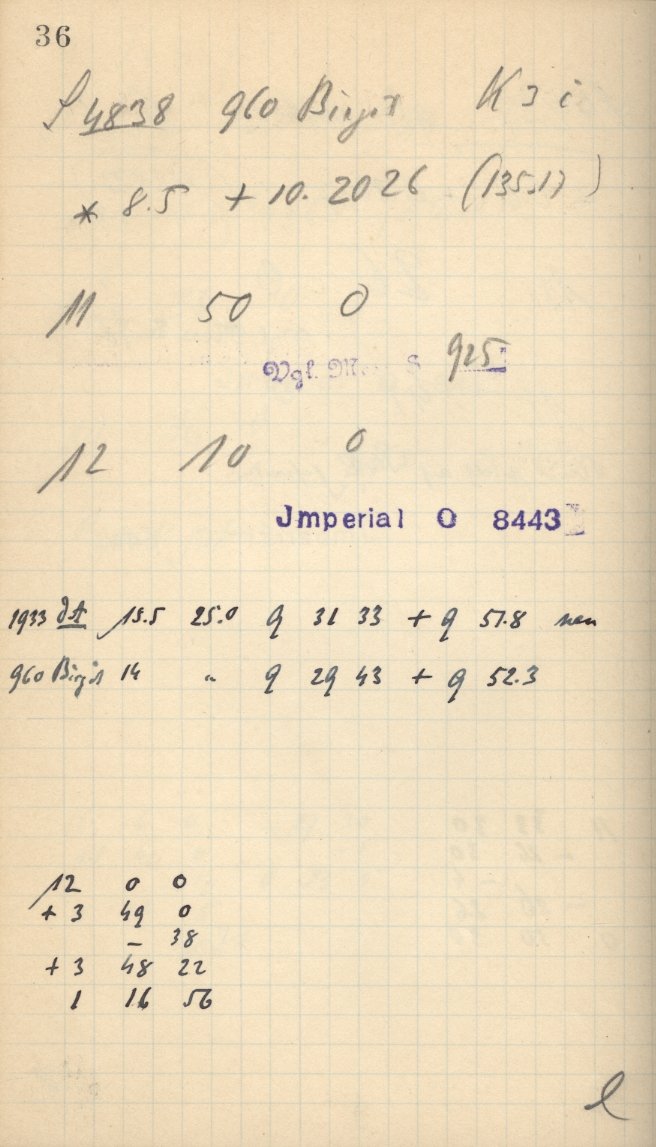 36
4838 960 Birgit K 3 i
* 8.5 + 10. 2026 (135.17)
11 50 0
Vgl. 925
12 10 0
Jmperial O 8443
1933 15.5 25.0 9 31 33 + 9 51.8 neu
960 Birgit 14 " 9 29 43 + 9 52.3
12 0 0
+ 3 49 0
– 38
+ 3 48 22
1 16 56